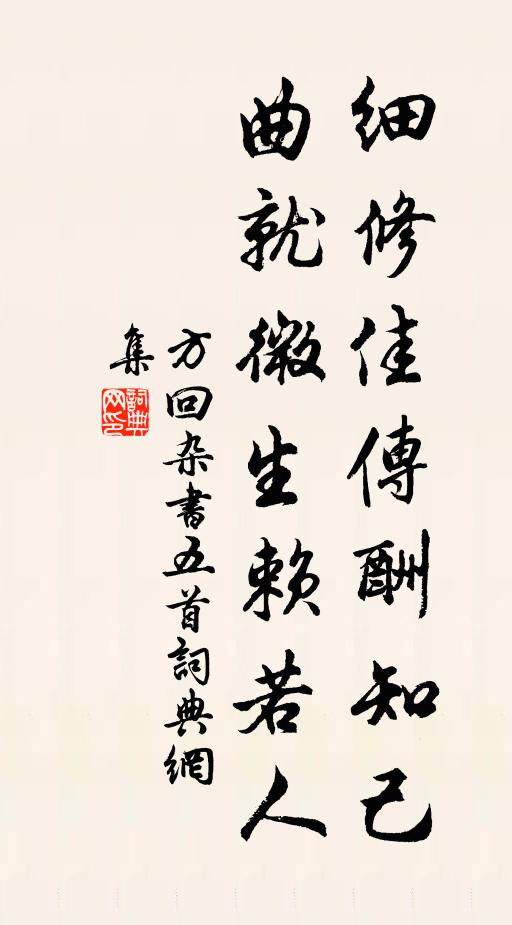 细修佳傳酬知己
曲就微生赖若人
方回杂書五首詞典網
集
詞典
网印